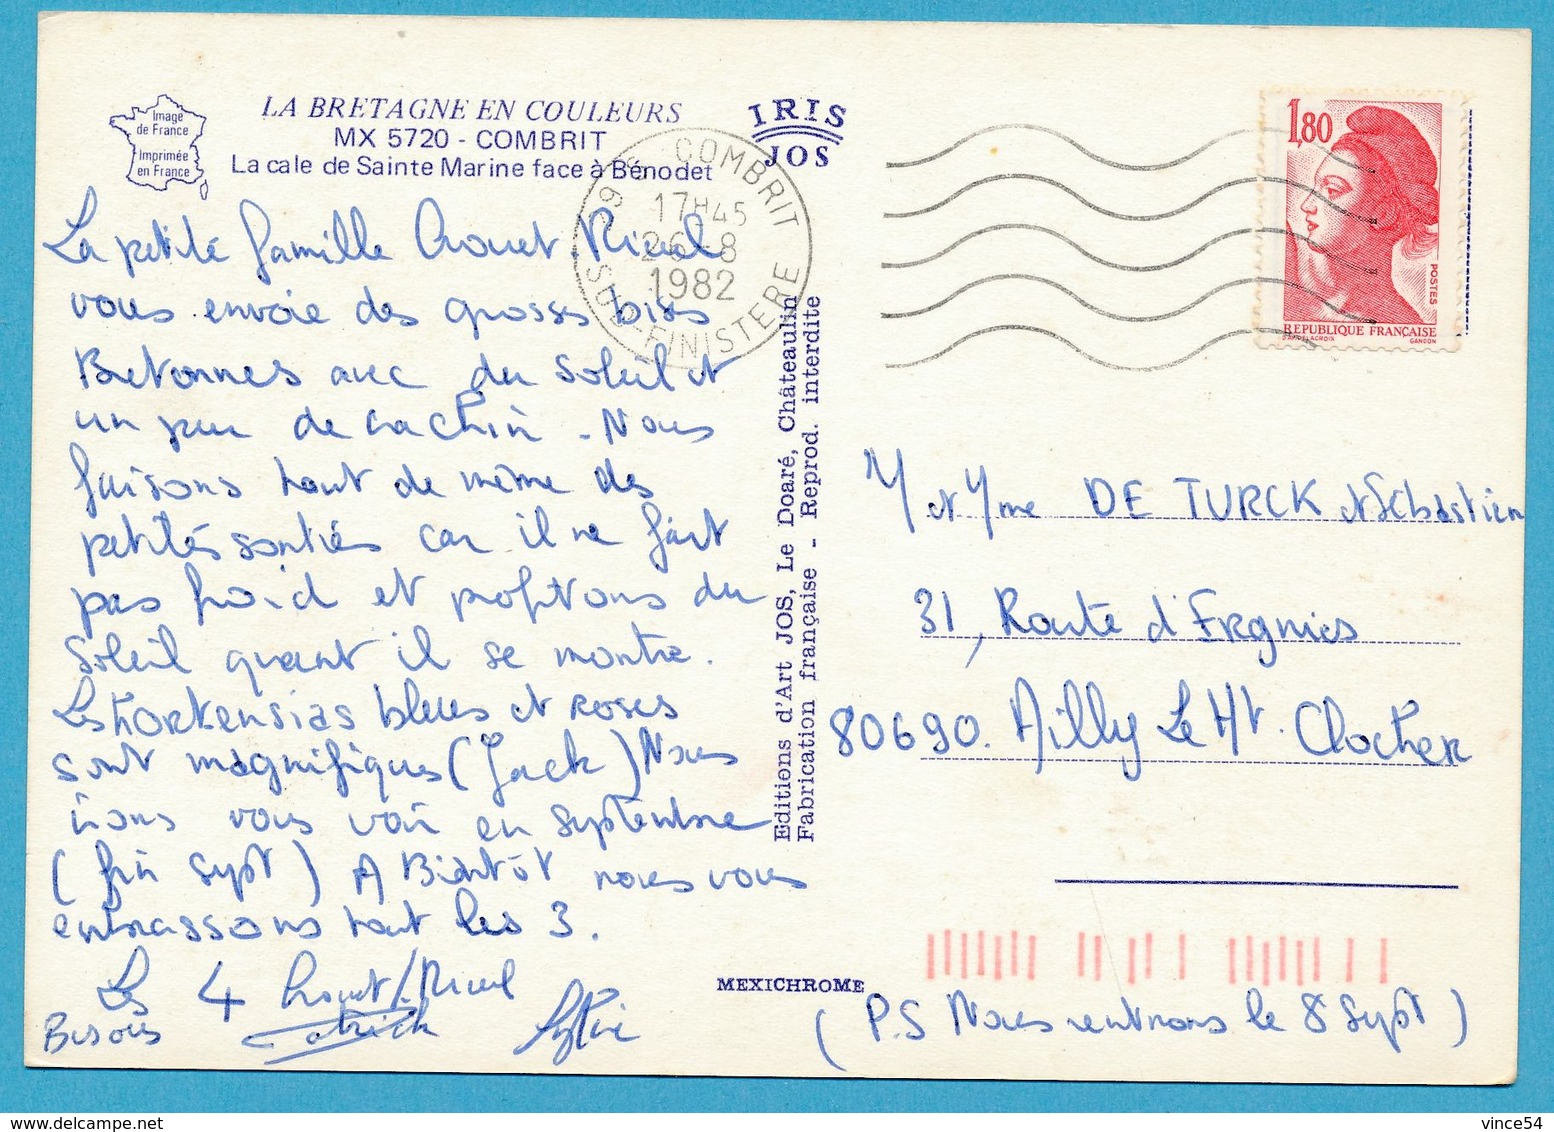 Image
de France
Imprimée
en France
LA BRETAGNE EN COULEURS
MX 5720 - COMBRIT
La cale de Sainte Marine face à Bénodet
IRIS
JOS
29 S COMBRIT
17H45
26-8
1982
SUD-FINISTERE
1,80
POSTES
REPUBLIQUE FRANÇAISE
D'APRES DELACROIX
GANDON
La petite famille Crouet Rieul
vous envoie des grosses bises
Bretonnes avec du soleil et
un peu de crachin - Nous
faisons tout de même des
petites sorties car il ne fait
pas froid et profitons du
soleil quant il se montre.
Les hortensias bleues et roses
sont magnifiques (Jack) Nous
irons vous voir en septembre
(fin sept) A Bientôt nous vous
embrassons tout les 3.
Les 4 Crouet/Rieul
Bisous Patrick Sylvie
Editions d'Art JOS, Le Doaré, Châteaulin
Fabrication française - Reprod. interdite
MEXICHROME
M et Mme DE TURCK et Sébastien
31, Route d'Ergnies
80690. Ailly Le Ht. Clocher
(P.S Nous rentrons le 8 sept)
delcampe.net
vince54